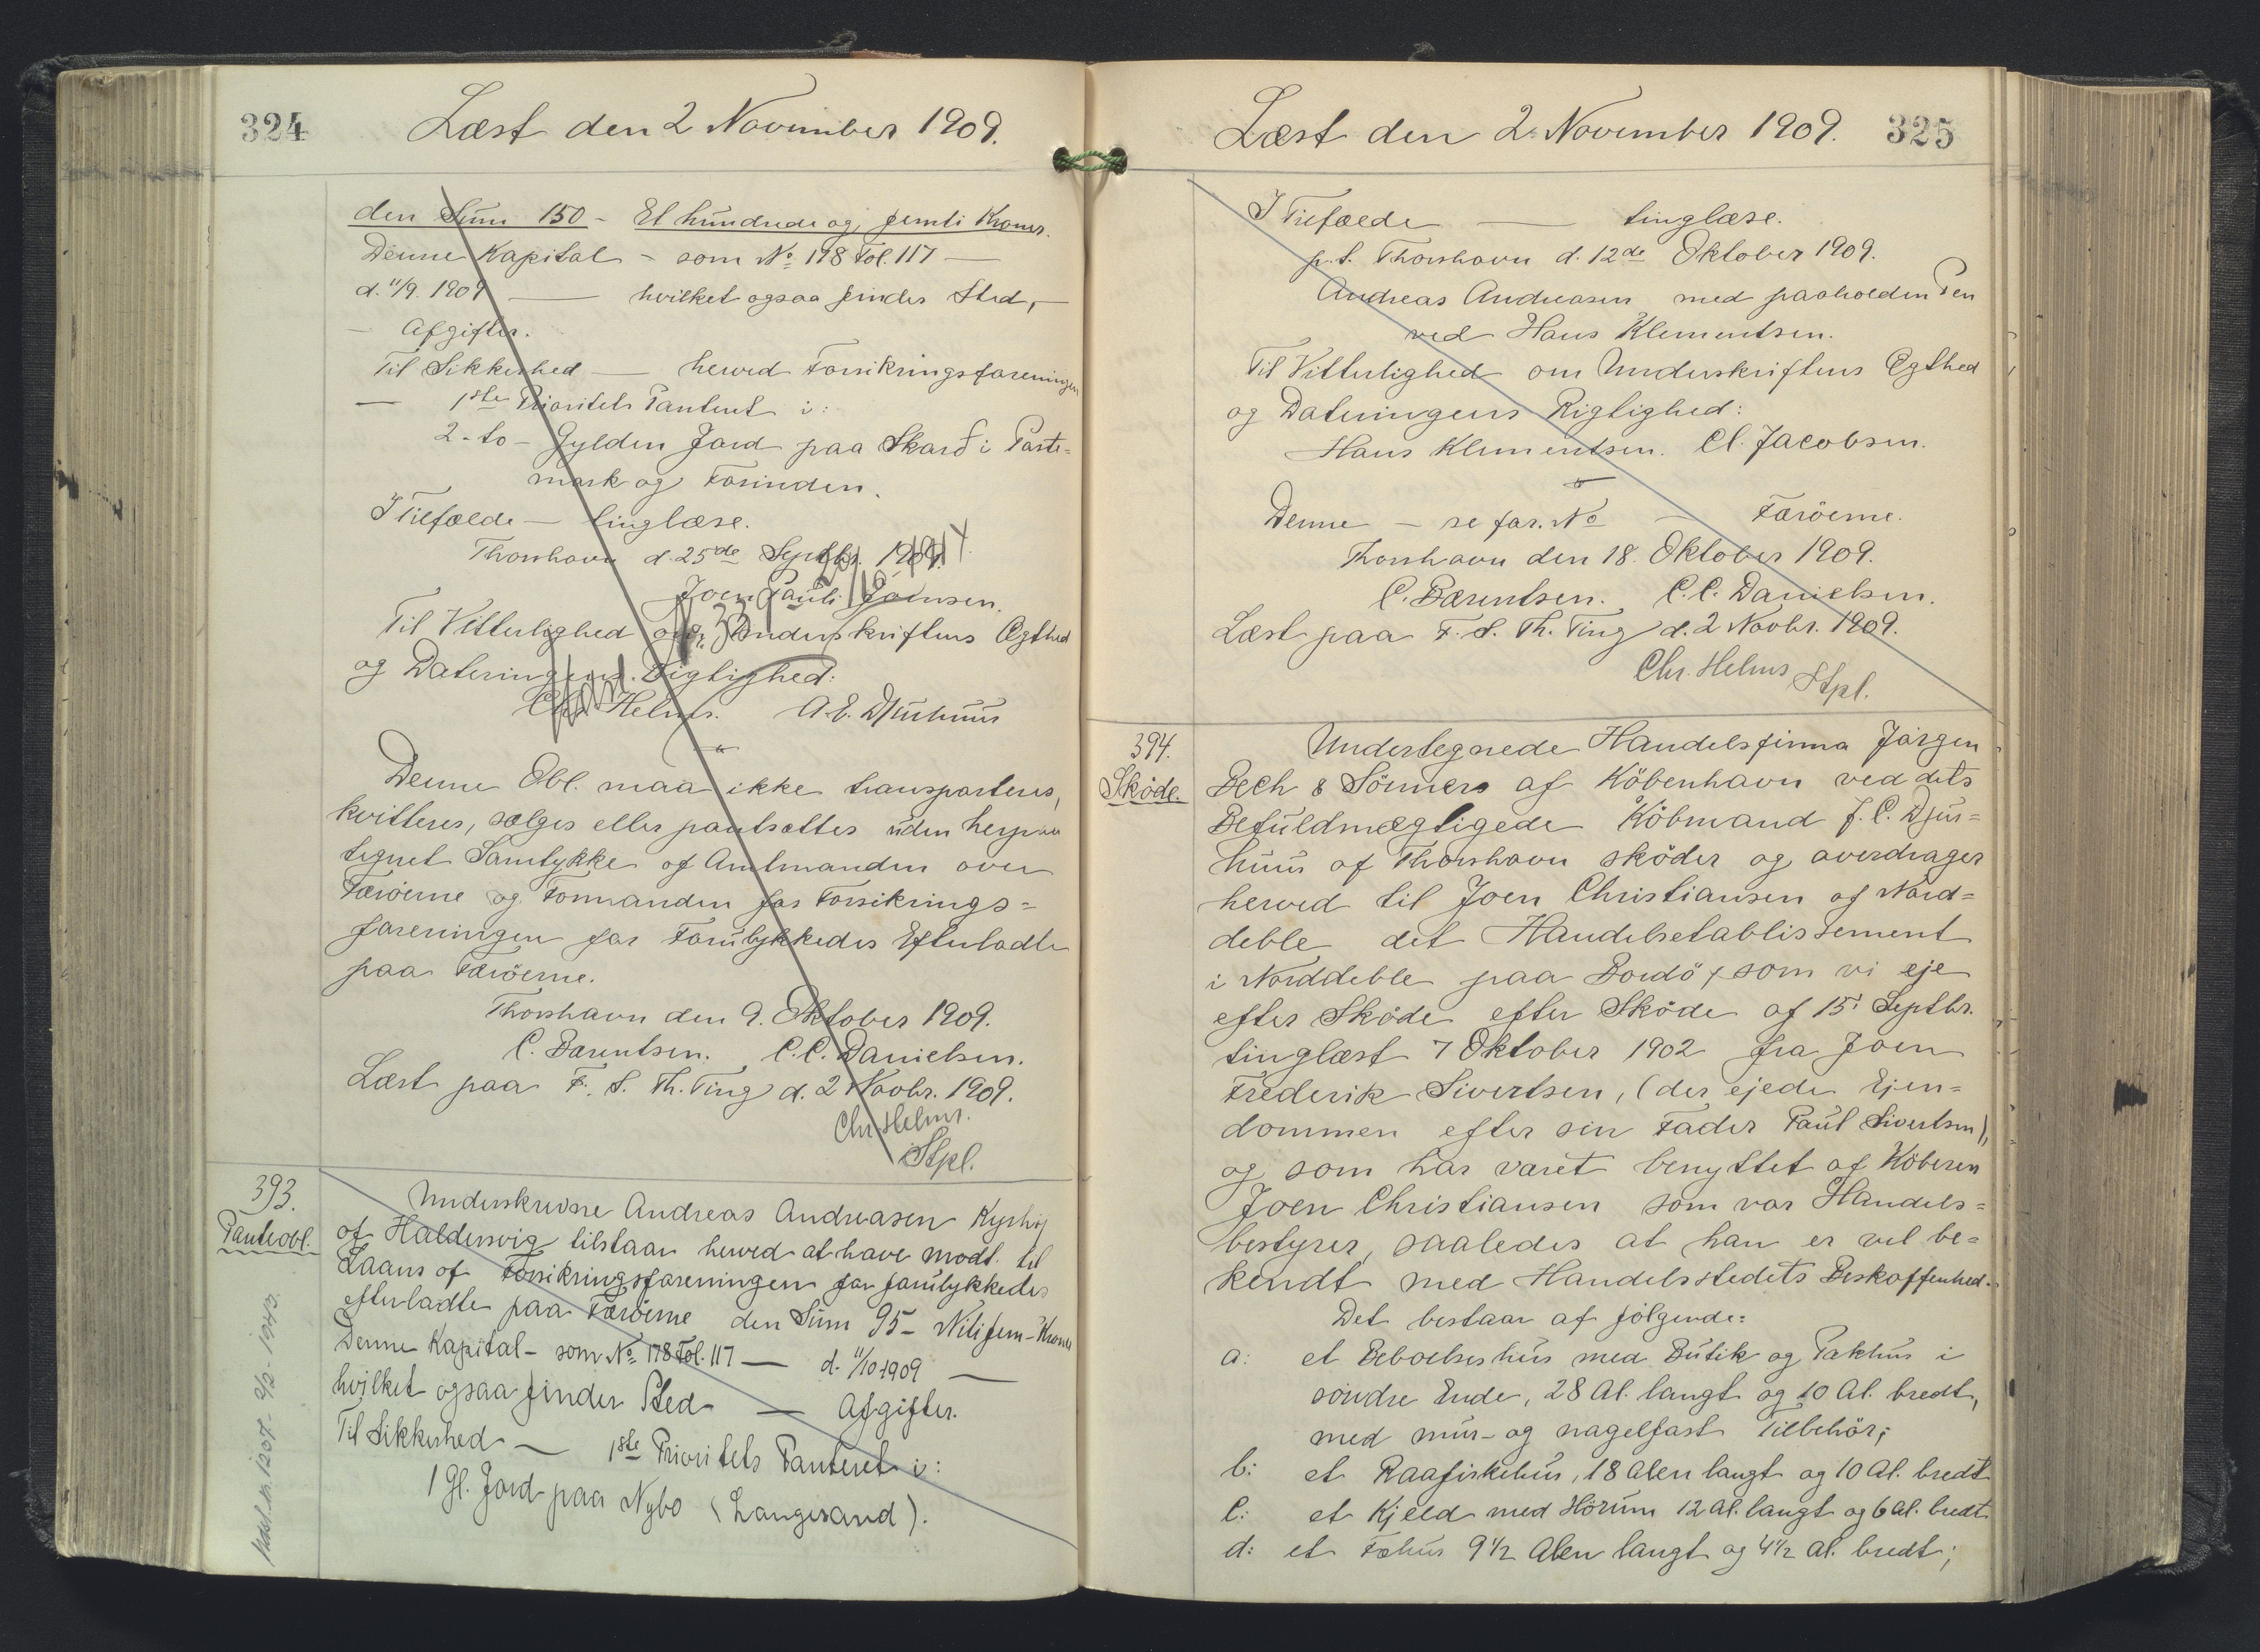 324
Læst den 2 November 1909.
den Sum 150 - Et hundrede og femti Kroner.
Denne Kapital - som No 178 Fol. 117 —
d. 11/9. 1909 — hvilket ogsaa finder Sted, —
— Afgifter.
Til Sikkerhed — herved Forsikringsforeningen
— 1ste Prioritets Panteret i:
2 - to - Gylden Jord paa Skarð i Parts=
mark og Forinden.
I Tilfælde — tinglæse.
Thorshavn d. 25de Septbr. 1909.
Joen Pauli Joensen.
Til Vitterlighed om Underskriftens Ægthed
og Dateringens Rigtighed:
Chr. Helms. A. E. Djurhuus
Denne Obl. maa ikke transporteres,
kvitteres, sælges eller pantsættes uden herpaa
tegnet Samtykke af Amtmanden over
Færöerne og Formanden for Forsikrings=
foreningen for Forulykkedes Efterladte
paa Færöerne.
Thorshavn den 9. Oktober 1909.
C. Bærentsen. C. C. Danielsen.
Læst paa F. S. Th. Ting d. 2 Novbr. 1909.
Chr. Helms.
Stpl.
393.
Panteobl.
Underskrevne Andreas Andreasen
af Haldersvig tilstaar herved at have modt. til
Laans af Forsikringsforeningen for forulykkedes
efterladte paa Færöerne den Sum 95 - Nitifem - Kroner
Denne Kapital - som No 178 Fol. 117 — d. 11/10 1909 —
hvilket ogsaa finder Sted — Afgifter.
Til Sikkerhed — 1ste Prioritets Panteret i:
1 Gl. Jord paa Nybo (Langesand).
325
Læst den 2 November 1909.
I Tilfælde — tinglæse.
p. t. Thorshavn d. 12de Oktober 1909.
Andreas Andreasen med paaholden Pen
ved Hans Klementsen.
Til Vitterlighed om Underskriftens Ægthed
og Dateringens Rigtighed:
Hans Klementsen. Cl. Jacobsen.
Denne — se for. No — Færöerne.
Thorshavn den 18. Oktober 1909.
C. Bærentsen. C. C. Danielsen.
Læst paa F. S. Th. Ting d. 2 Novbr. 1909.
Chr. Helms
Stpl.
394.
Sköde.
Undertegnede Handelsfirma Jörgen
Bech & Sönners af Köbenhavn ved dets
Befuldmægtigede Köbmand J. C. Djur=
huus af Thorshavn sköder og overdrager
herved til Joen Christiansen af Nord=
deble det Handelsetablissement
i Norddeble paa Bordö, som vi eje
efter Sköde efter Sköde af 15' Septbr.
tinglæst 7 Oktober 1902 fra Joen
Frederik Sivertsen, (der ejede Ejen=
dommen efter sin Fader Paul Sivertsen),
og som har været benyttet af Köberen
Joen Christiansen som var Handels=
bestyrer, saaledes at han er vel be=
kendt med Handelsstedets Beskaffenhed.
Det bestaar af fölgende:
a: et Beboelseshus med Butik og Pakhus i
söndre Ende, 28 Al. langt og 10 Al. bredt,
med mur- og nagelfast Tilbehör;
b: et Raafiskehus, 18 Alen langt og 10 Al. bredt
c: et Kjeld med Hörum 12 Al. langt og 6 Al. bredt.
d: et Fæhus 9 1/2 Alen langt og 4 1/2 Al. bredt;